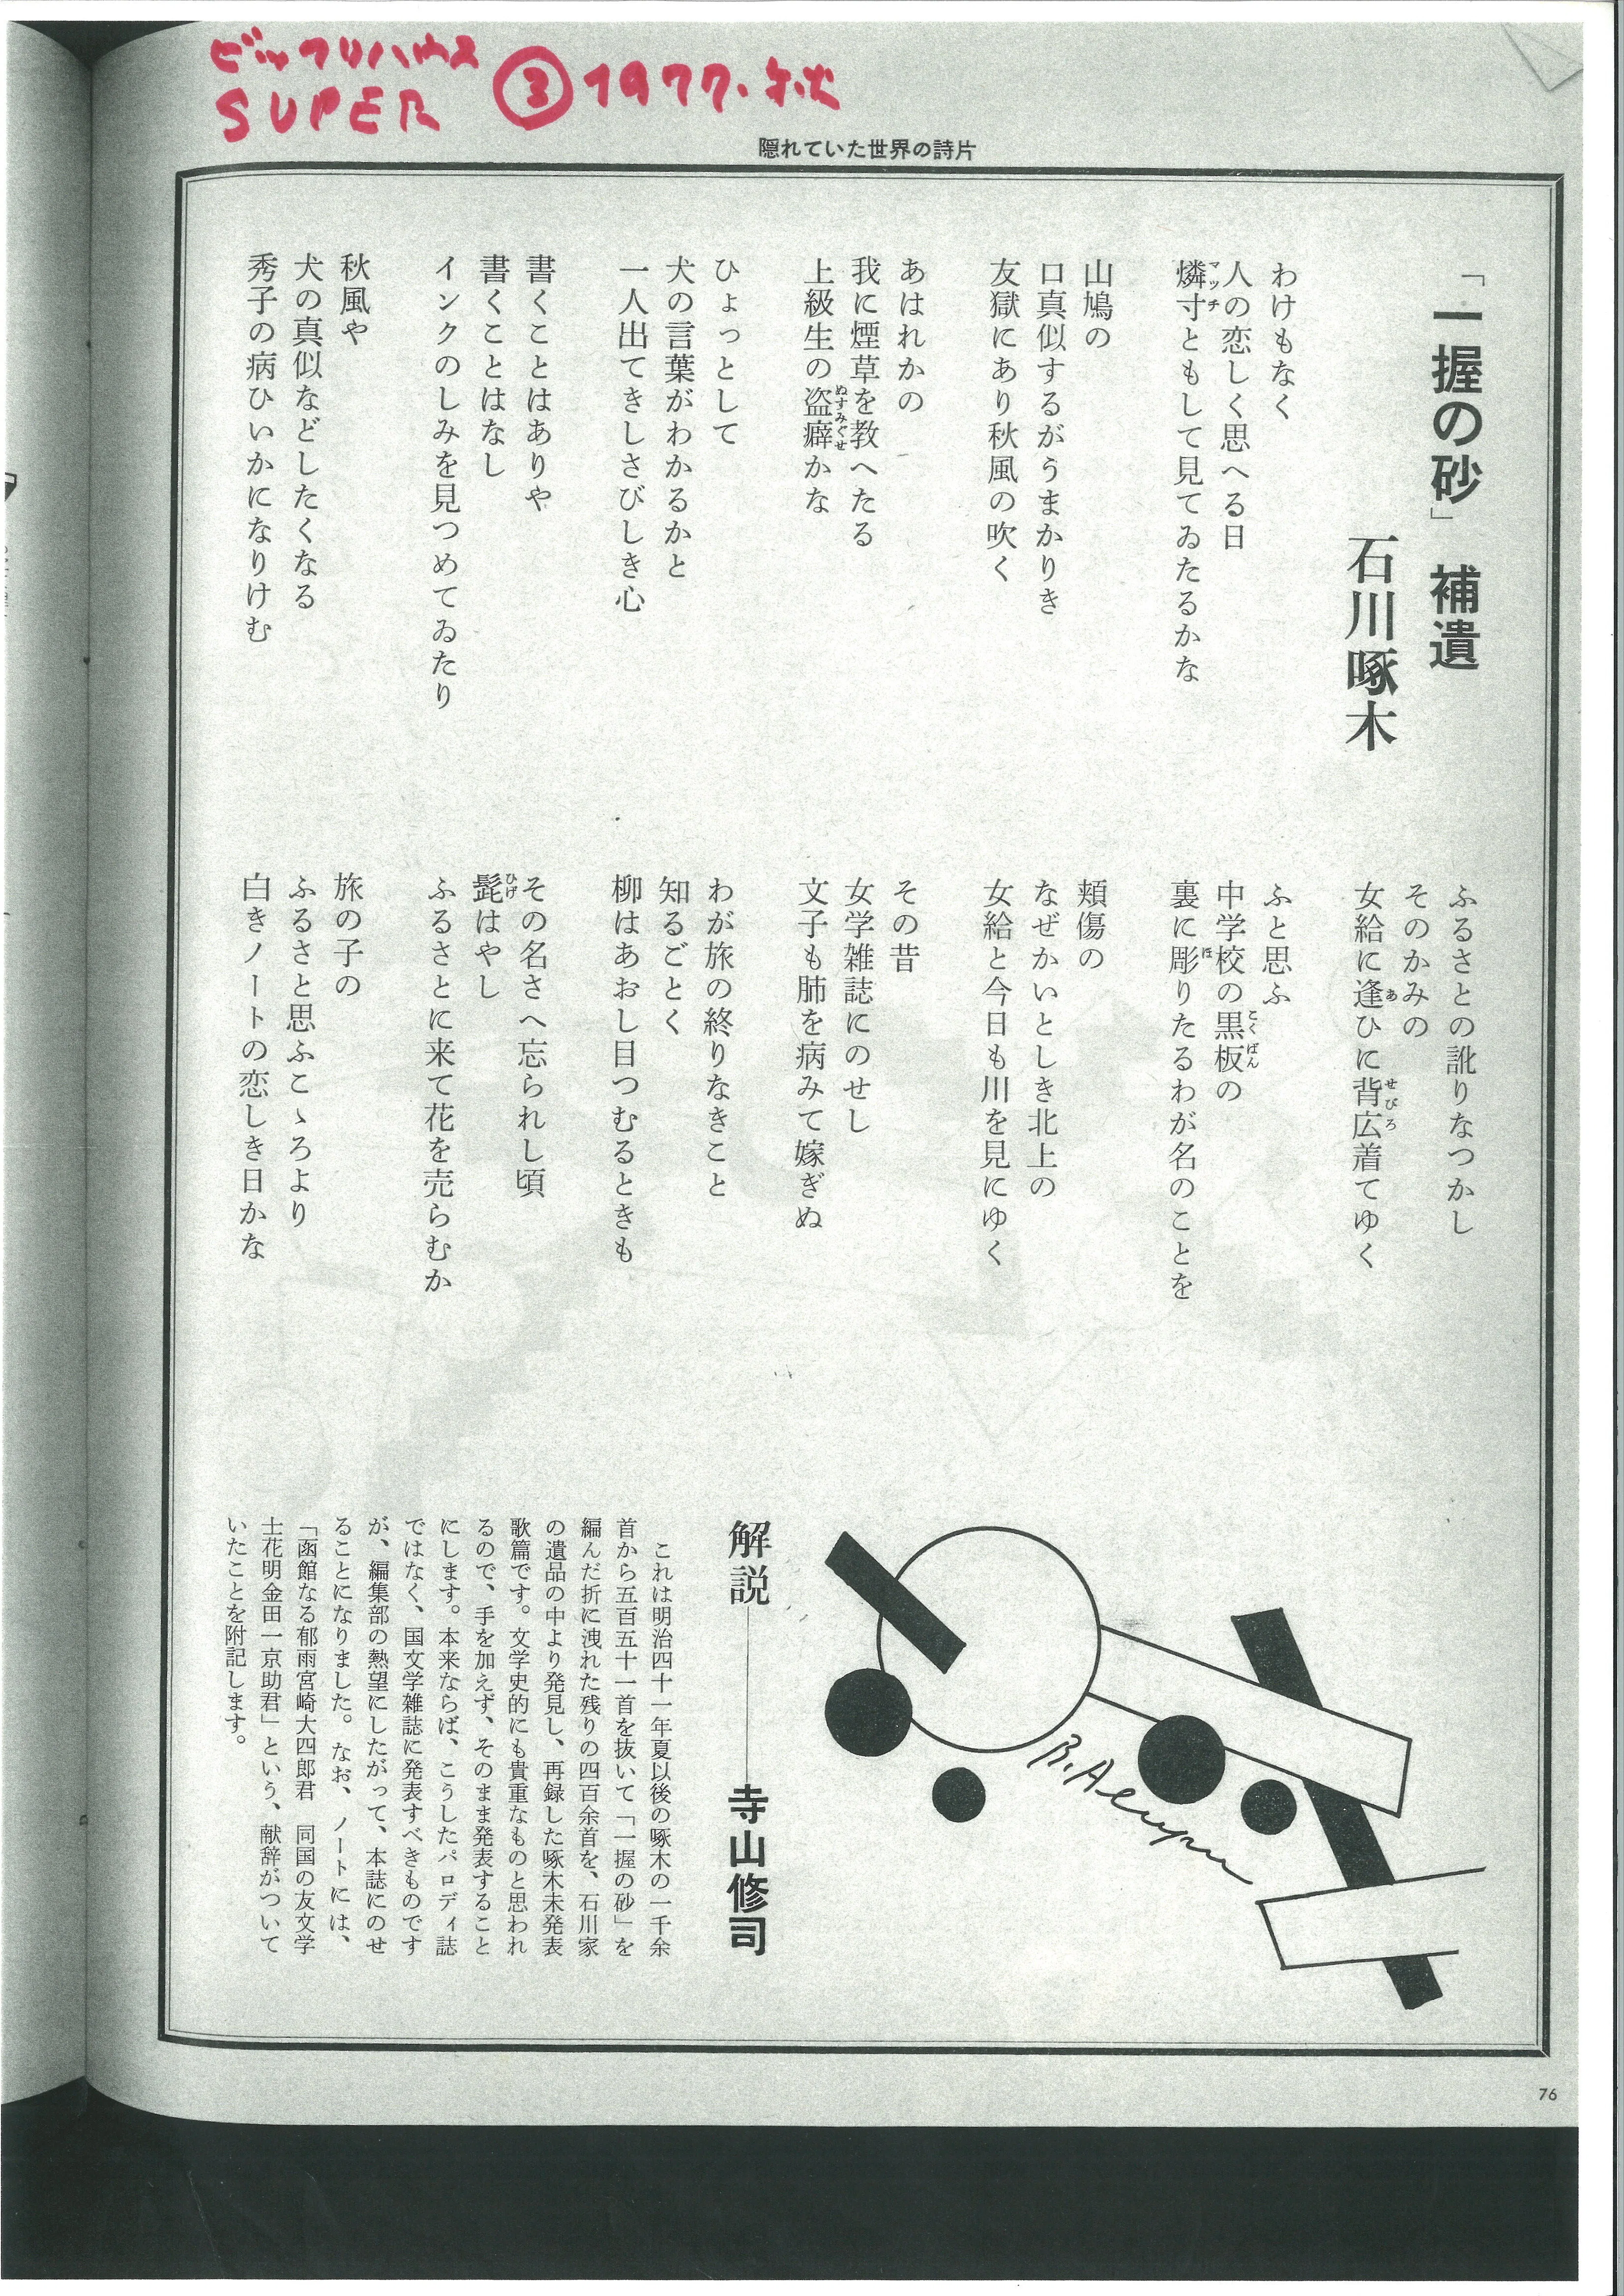 ビックリハウス
SUPER ③ 1977.秋
隠れていた世界の詩片
「一握の砂」補遺
石川啄木
わけもなく
人の恋しく思へる日
燐寸ともして見てゐたるかな
マッチ
山鳩の
口真似するがうまかりき
友獄にあり秋風の吹く
あはれかの
我に煙草を教へたる
上級生の盗癖かな
ぬすみぐせ
ひょっとして
犬の言葉がわかるかと
一人出てきしさびしき心
書くことはありや
書くことはなし
インクのしみを見つめてゐたり
秋風や
犬の真似などしたくなる
秀子の病ひいかになりけむ
ふるさとの訛りなつかし
そのかみの
女給に逢ひに背広着てゆく
あ
せびろ
ふと思ふ
中学校の黒板の
こくばん
裏に彫りたるわが名のことを
ほ
頬傷の
なぜかいとしき北上の
女給と今日も川を見にゆく
その昔
女学雑誌にのせし
文子も肺を病みて嫁ぎぬ
わが旅の終りなきこと
知るごとく
柳はあおし目つむるときも
その名さへ忘られし頃
髭はやし
ひげ
ふるさとに来て花を売らむか
旅の子の
ふるさと思ふこゝろより
白きノートの恋しき日かな
解説――寺山修司
これは明治四十一年夏以後の啄木の一千余
首から五百五十一首を抜いて「一握の砂」を
編んだ折に洩れた残りの四百余首を、石川家
の遺品の中より発見し、再録した啄木未発表
歌篇です。文学史的にも貴重なものと思われ
るので、手を加えず、そのまま発表すること
にします。本来ならば、こうしたパロディ誌
ではなく、国文学雑誌に発表すべきものです
が、編集部の熱望にしたがって、本誌にのせ
ることになりました。なお、ノートには、
「函館なる郁雨宮崎大四郎君　同国の友文学
士花明金田一京助君」という、献辞がついて
いたことを附記します。
76